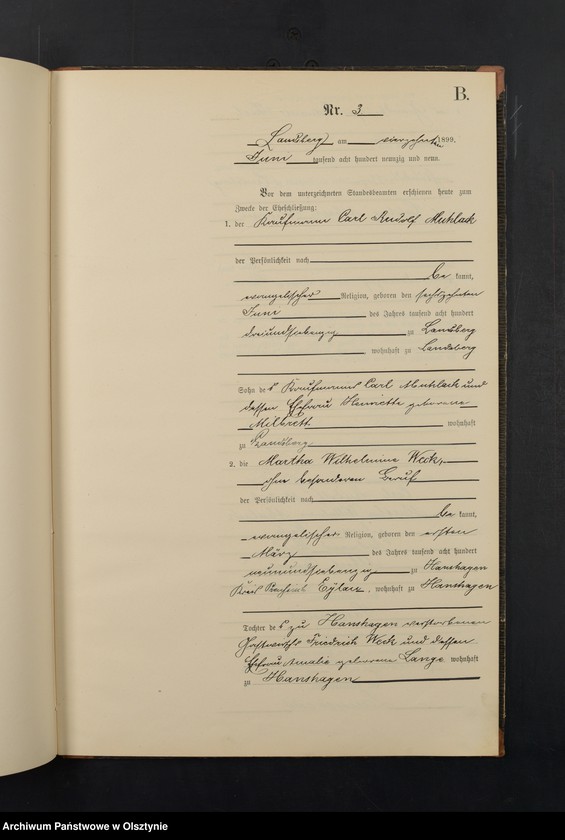 B.
Nr. 3
Landsberg am vierzehnten 1899.
Juni tausend acht hundert neunzig und neun.
Vor dem unterzeichneten Standesbeamten erschienen heute zum
Zwecke der Eheschließung:
1. der Kaufmann Carl Rudolf Muhlack
der Persönlichkeit nach
be kannt,
evangelischer Religion, geboren den sechszehnten
Juni des Jahres tausend acht hundert
dreiundsiebenzig zu Landsberg
wohnhaft zu Landsberg
Sohn des Kaufmanns Carl Muhlack und
dessen Ehefrau Henriette geborene
wohnhaft
zu Landsberg
2. die Martha Wilhelmine Weck,
ohne besonderen Beruf
der Persönlichkeit nach
be kannt,
evangelischer Religion, geboren den ersten
März des Jahres tausend acht hundert
neunundsiebenzig zu Hanshagen
Kreis Eylau, wohnhaft zu Hanshagen
Tochter des zu Hanshagen verstorbenen
Gastwirths Friedrich Weck und dessen
Ehefrau Amalie geborene Lange wohnhaft
zu Hanshagen
Archiwum Państwowe w Olsztynie